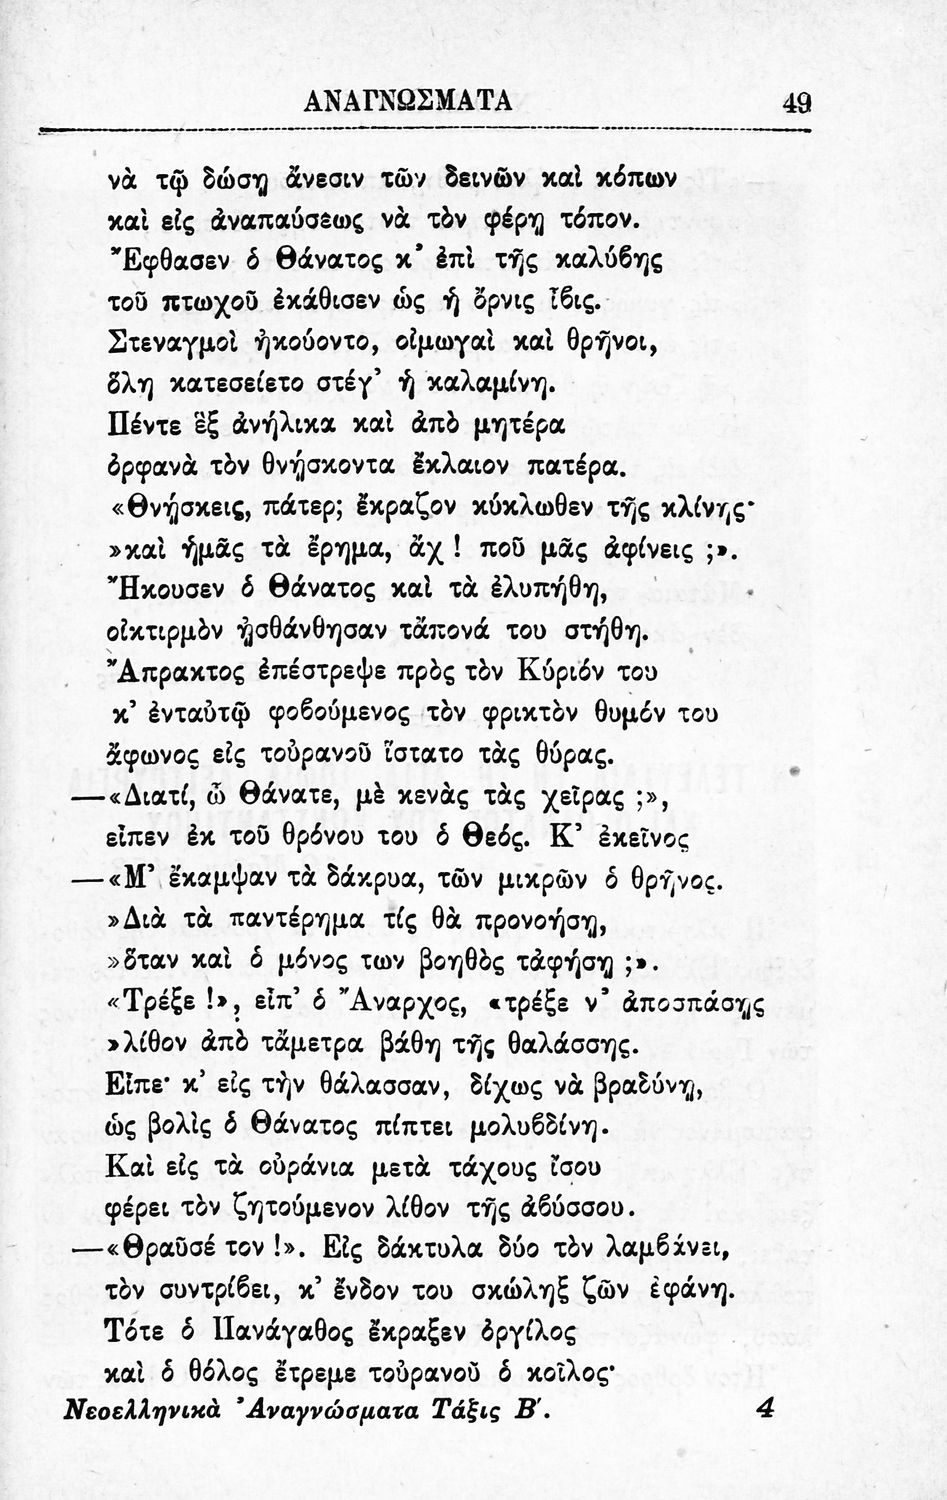 ΑΝΑΓΝΩΣΜΑΤΑ 49
νὰ τῷ δώσῃ ἄνεσιν τῶν δεινῶν καὶ κόπων
καὶ εἰς ἀναπαύσεως νὰ τὸν φέρῃ τόπον.
Ἔφθασεν ὁ Θάνατος κ' ἐπὶ τῆς καλύβης
τοῦ πτωχοῦ ἐκάθισεν ὡς ἡ ὄρνις ἶβις.
Στεναγμοὶ ἠκούοντο, οἰμωγαὶ καὶ θρῆνοι,
ὅλη κατεσείετο στέγ' ἡ καλαμίνη.
Πέντε ἓξ ἀνήλικα καὶ ἀπὸ μητέρα
ὀρφανὰ τὸν θνῄσκοντα ἔκλαιον πατέρα.
«Θνῄσκεις, πάτερ; ἔκραζον κύκλωθεν τῆς κλίνης·
»καὶ ἡμᾶς τὰ ἔρημα, ἄχ ! ποῦ μᾶς ἀφίνεις ;».
Ἤκουσεν ὁ Θάνατος καὶ τὰ ἐλυπήθη,
οἰκτιρμὸν ᾐσθάνθησαν τἄπονά του στήθη.
Ἄπρακτος ἐπέστρεψε πρὸς τὸν Κύριόν του
κ' ἐνταὐτῷ φοβούμενος τὸν φρικτὸν θυμόν του
ἄφωνος εἰς τοὐρανοῦ ἵστατο τὰς θύρας.
—«Διατί, ὦ Θάνατε, μὲ κενὰς τὰς χεῖρας ;»,
εἶπεν ἐκ τοῦ θρόνου του ὁ Θεός. Κ' ἐκεῖνος
—«Μ' ἔκαμψαν τὰ δάκρυα, τῶν μικρῶν ὁ θρῆνος.
»Διὰ τὰ παντέρημα τίς θὰ προνοήσῃ,
»ὅταν καὶ ὁ μόνος των βοηθὸς τἀφήσῃ ;».
«Τρέξε !», εἶπ' ὁ Ἄναρχος, «τρέξε ν' ἀποσπάσῃς
»λίθον ἀπὸ τἄμετρα βάθη τῆς θαλάσσης.
Εἶπε· κ' εἰς τὴν θάλασσαν, δίχως νὰ βραδύνῃ,
ὡς βολὶς ὁ Θάνατος πίπτει μολυβδίνη.
Καὶ εἰς τὰ οὐράνια μετὰ τάχους ἴσου
φέρει τὸν ζητούμενον λίθον τῆς ἀβύσσου.
—«Θραῦσέ τον !». Εἰς δάκτυλα δύο τὸν λαμβάνει,
τὸν συντρίβει, κ' ἔνδον του σκώληξ ζῶν ἐφάνη.
Τότε ὁ Πανάγαθος ἔκραξεν ὀργίλος
καὶ ὁ θόλος ἔτρεμε τοὐρανοῦ ὁ κοῖλος·
Νεοελληνικὰ Ἀναγνώσματα Τάξις Β′. 4